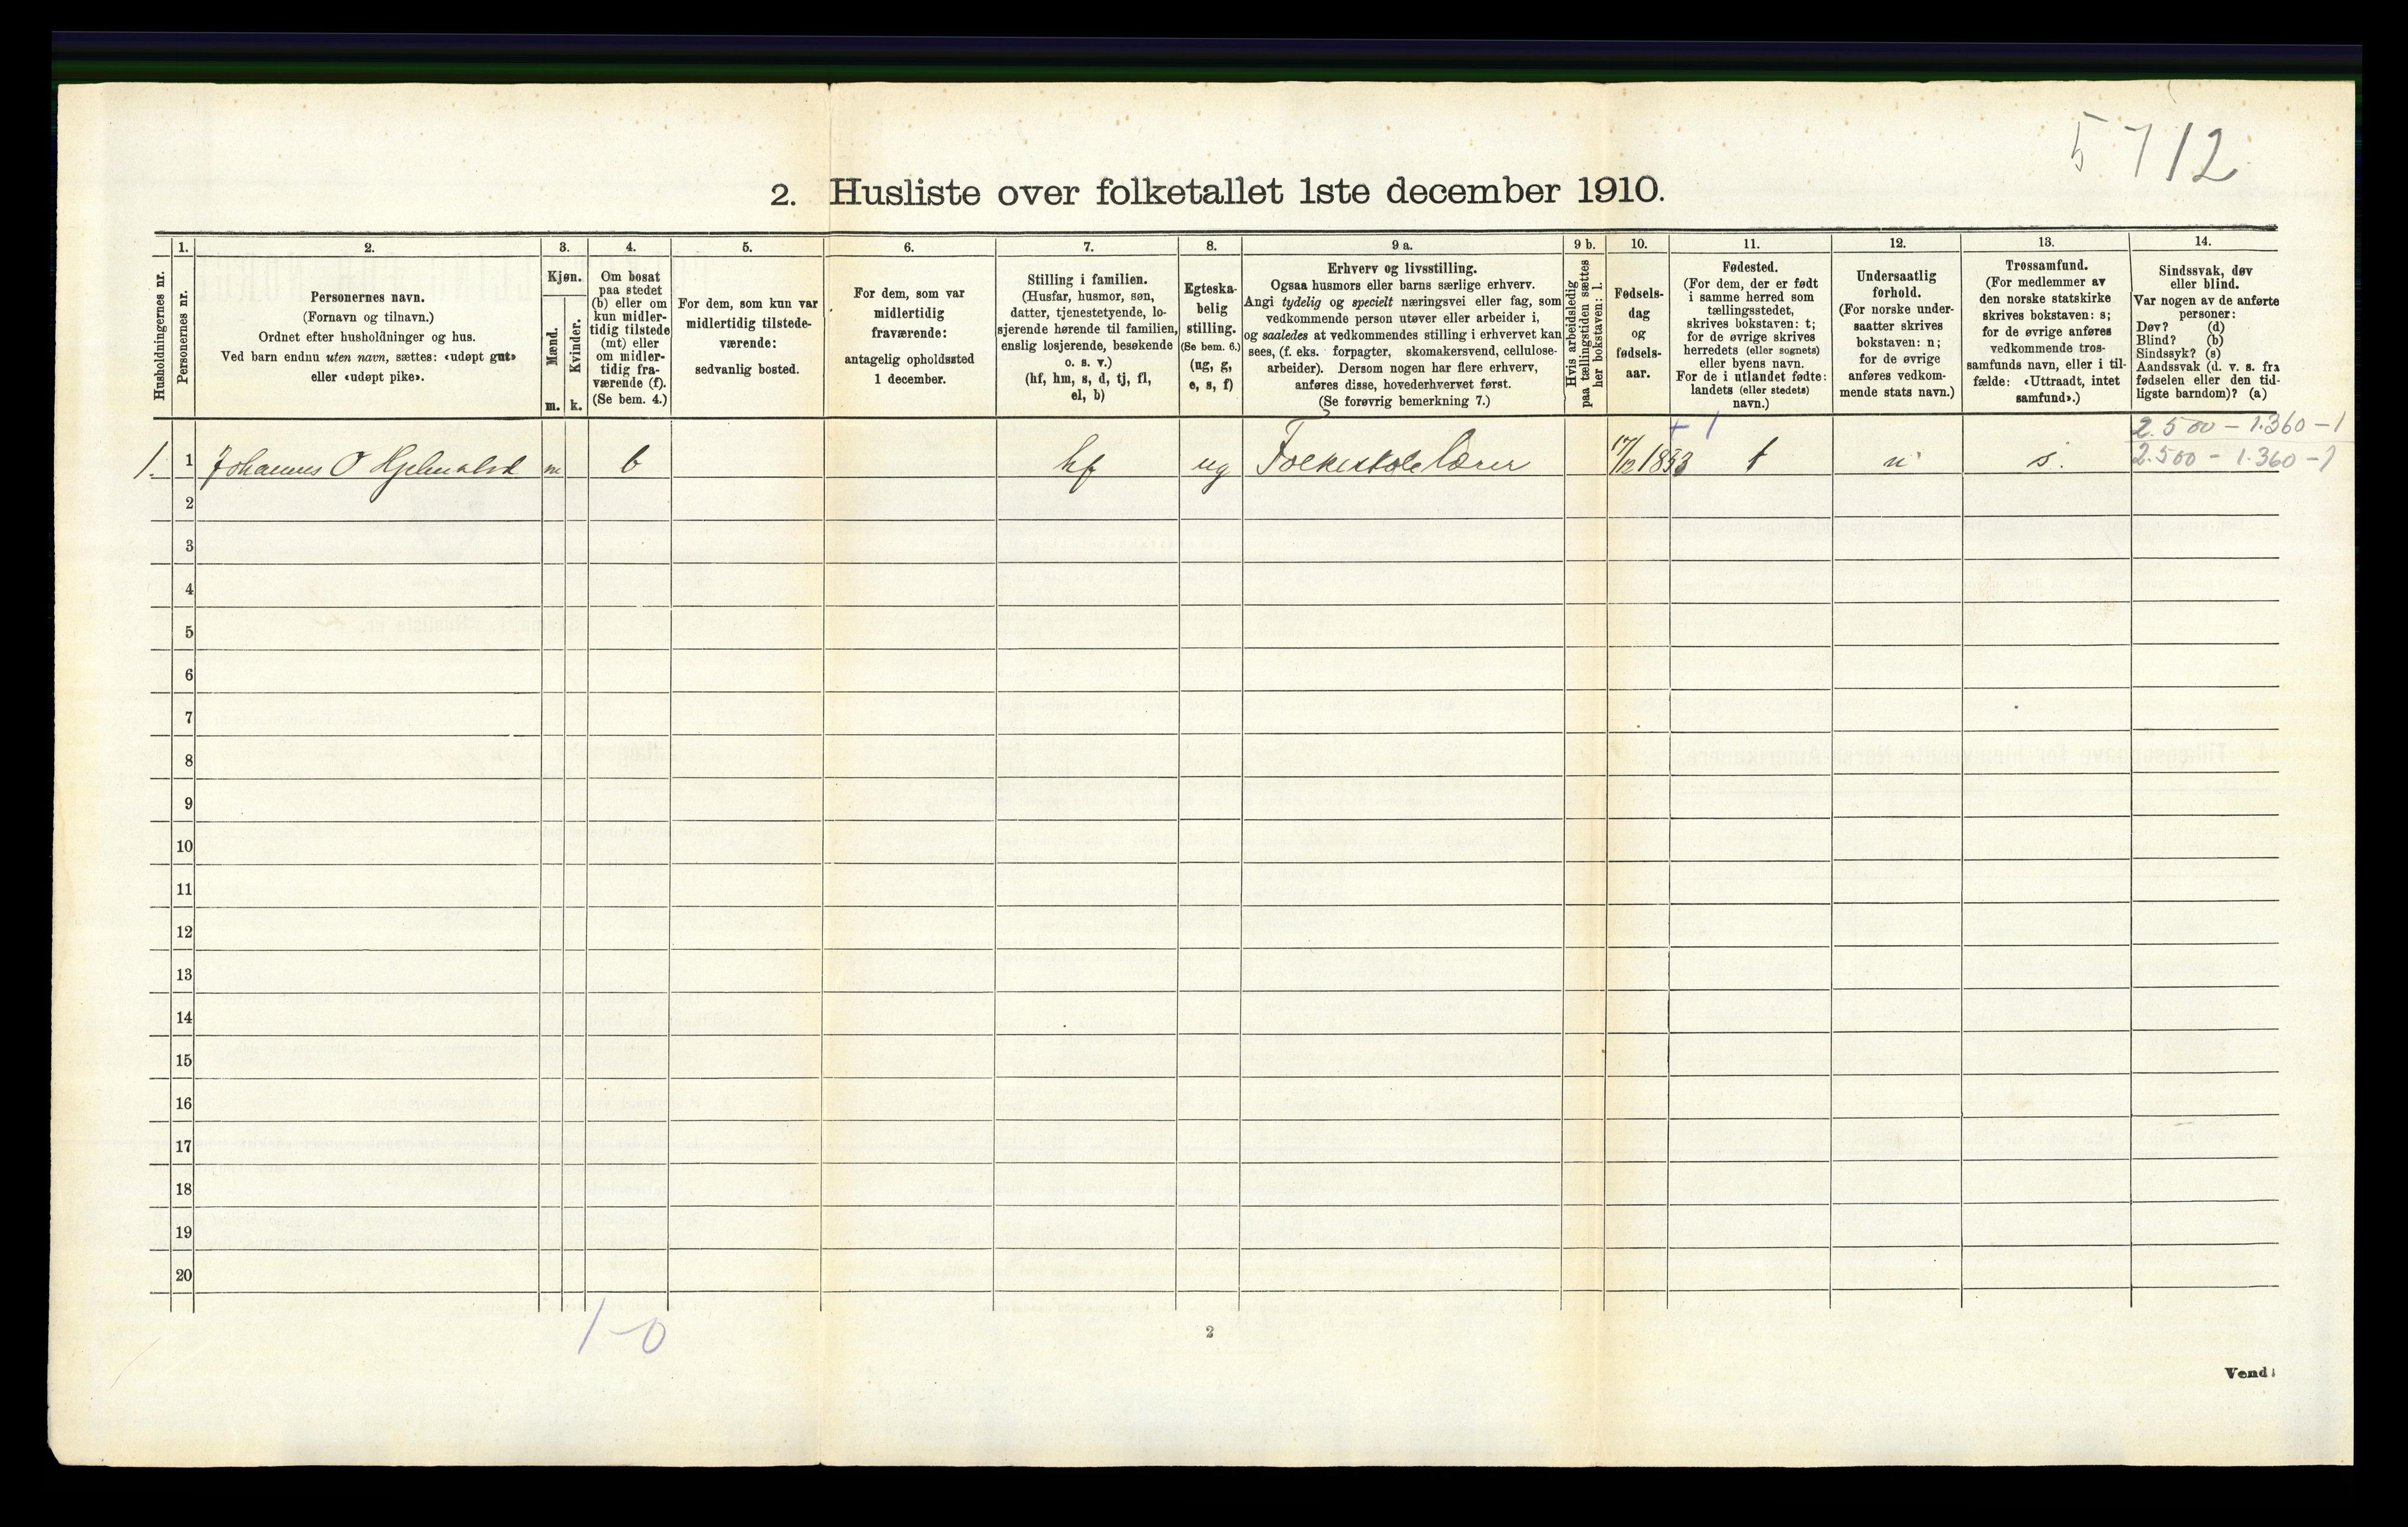 5712
2. Husliste over folketallet 1ste december 1910.
Husholdningernes nr.
1.
Personernes nr.
2.
Personernes navn.
(Fornavn og tilnavn.)
Ordnet efter husholdninger og hus.
Ved barn endnu uten navn, sættes: «udøpt gut»
eller «udøpt pike».
3.
Kjøn.
Mænd.
m.
Kvinder.
k.
4.
Om bosat
paa stedet
(b) eller om
kun midler-
tidig tilstede
(mt) eller
om midler-
tidig fra-
værende (f).
(Se bem. 4.)
5.
For dem, som kun var
midlertidig tilstede-
værende:
sedvanlig bosted.
6.
For dem, som var
midlertidig
fraværende:
antagelig opholdssted
1 december.
7.
Stilling i familien.
(Husfar, husmor, søn,
datter, tjenestetyende, lo-
sjerende hørende til familien,
enslig losjerende, besøkende
o. s. v.)
(hf, hm, s, d, tj, fl,
el, b)
8.
Egteska-
belig
stilling.
(Se bem. 6.)
(ug, g,
e, s, f)
9 a.
Erhverv og livsstilling.
Ogsaa husmors eller barns særlige erhverv.
Angi tydelig og specielt næringsvei eller fag, som
vedkommende person utøver eller arbeider i,
og saaledes at vedkommendes stilling i erhvervet kan
sees, (f. eks. forpagter, skomakersvend, cellulose-
arbeider). Dersom nogen har flere erhverv,
anføres disse, hovederhvervet først.
(Se forøvrig bemerkning 7.)
9 b.
Hvis arbeidsledig
paa tællingstiden sættes
her bokstaven: l.
10.
Fødsels-
dag
og
fødsels-
aar.
11.
Fødested.
(For dem, der er født
i samme herred som
tællingsstedet,
skrives bokstaven: t;
for de øvrige skrives
herredets (eller sognets)
eller byens navn.
For de i utlandet fødte:
landets (eller stedets)
navn.)
12.
Undersaatlig
forhold.
(For norske under-
saatter skrives
bokstaven: n;
for de øvrige
anføres vedkom-
mende stats navn.)
13.
Trossamfund.
(For medlemmer av
den norske statskirke
skrives bokstaven: s;
for de øvrige anføres
vedkommende tros-
samfunds navn, eller i til-
fælde: «Uttraadt, intet
samfund».)
14.
Sindssvak, døv
eller blind.
Var nogen av de anførte
personer:
Døv? (d)
Blind? (b)
Sindssyk? (s)
Aandssvak (d. v. s. fra
fødselen eller den tid-
ligste barndom)? (a)
+ 1
2.500 - 1.360 - 1
1. 1 Johannes O m b hf ug Folkeskolelærer 17/12 1853 t n s. 2.500 - 1.360 - 1
2
3
4
5
6
7
8
9
10
11
12
13
14
15
16
17
18
19
20
1-0
2
Vend!